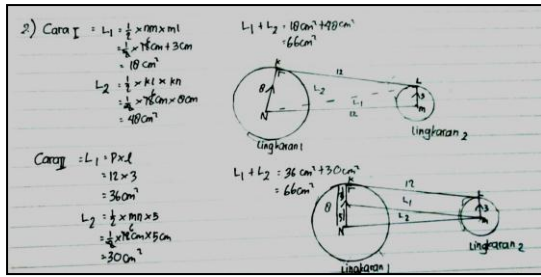 2) Cara I = L₁ = 1/2 × nm × ml
= 1/2 × 12cm + 3cm
= 18 cm²
L₂ = 1/2 × kl × kn
= 1/2 × 12cm × 8cm
= 48cm²
L₁ + L₂ = 18cm² + 48cm²
= 66cm²
K
12
L
8
L₂
3
L₁
N
12
m
lingkaran 1
lingkaran 2
Cara II = L₁ = P × l
= 12 × 3
= 36cm²
L₂ = 1/2 × mn × 5
= 1/2 × 12cm × 5cm
= 30cm²
L₁ + L₂ = 36 cm² + 30cm²
= 66cm²
K
12
L
8
L₁
3
5
L₂
N
m
lingkaran 1
Lingkaran 2